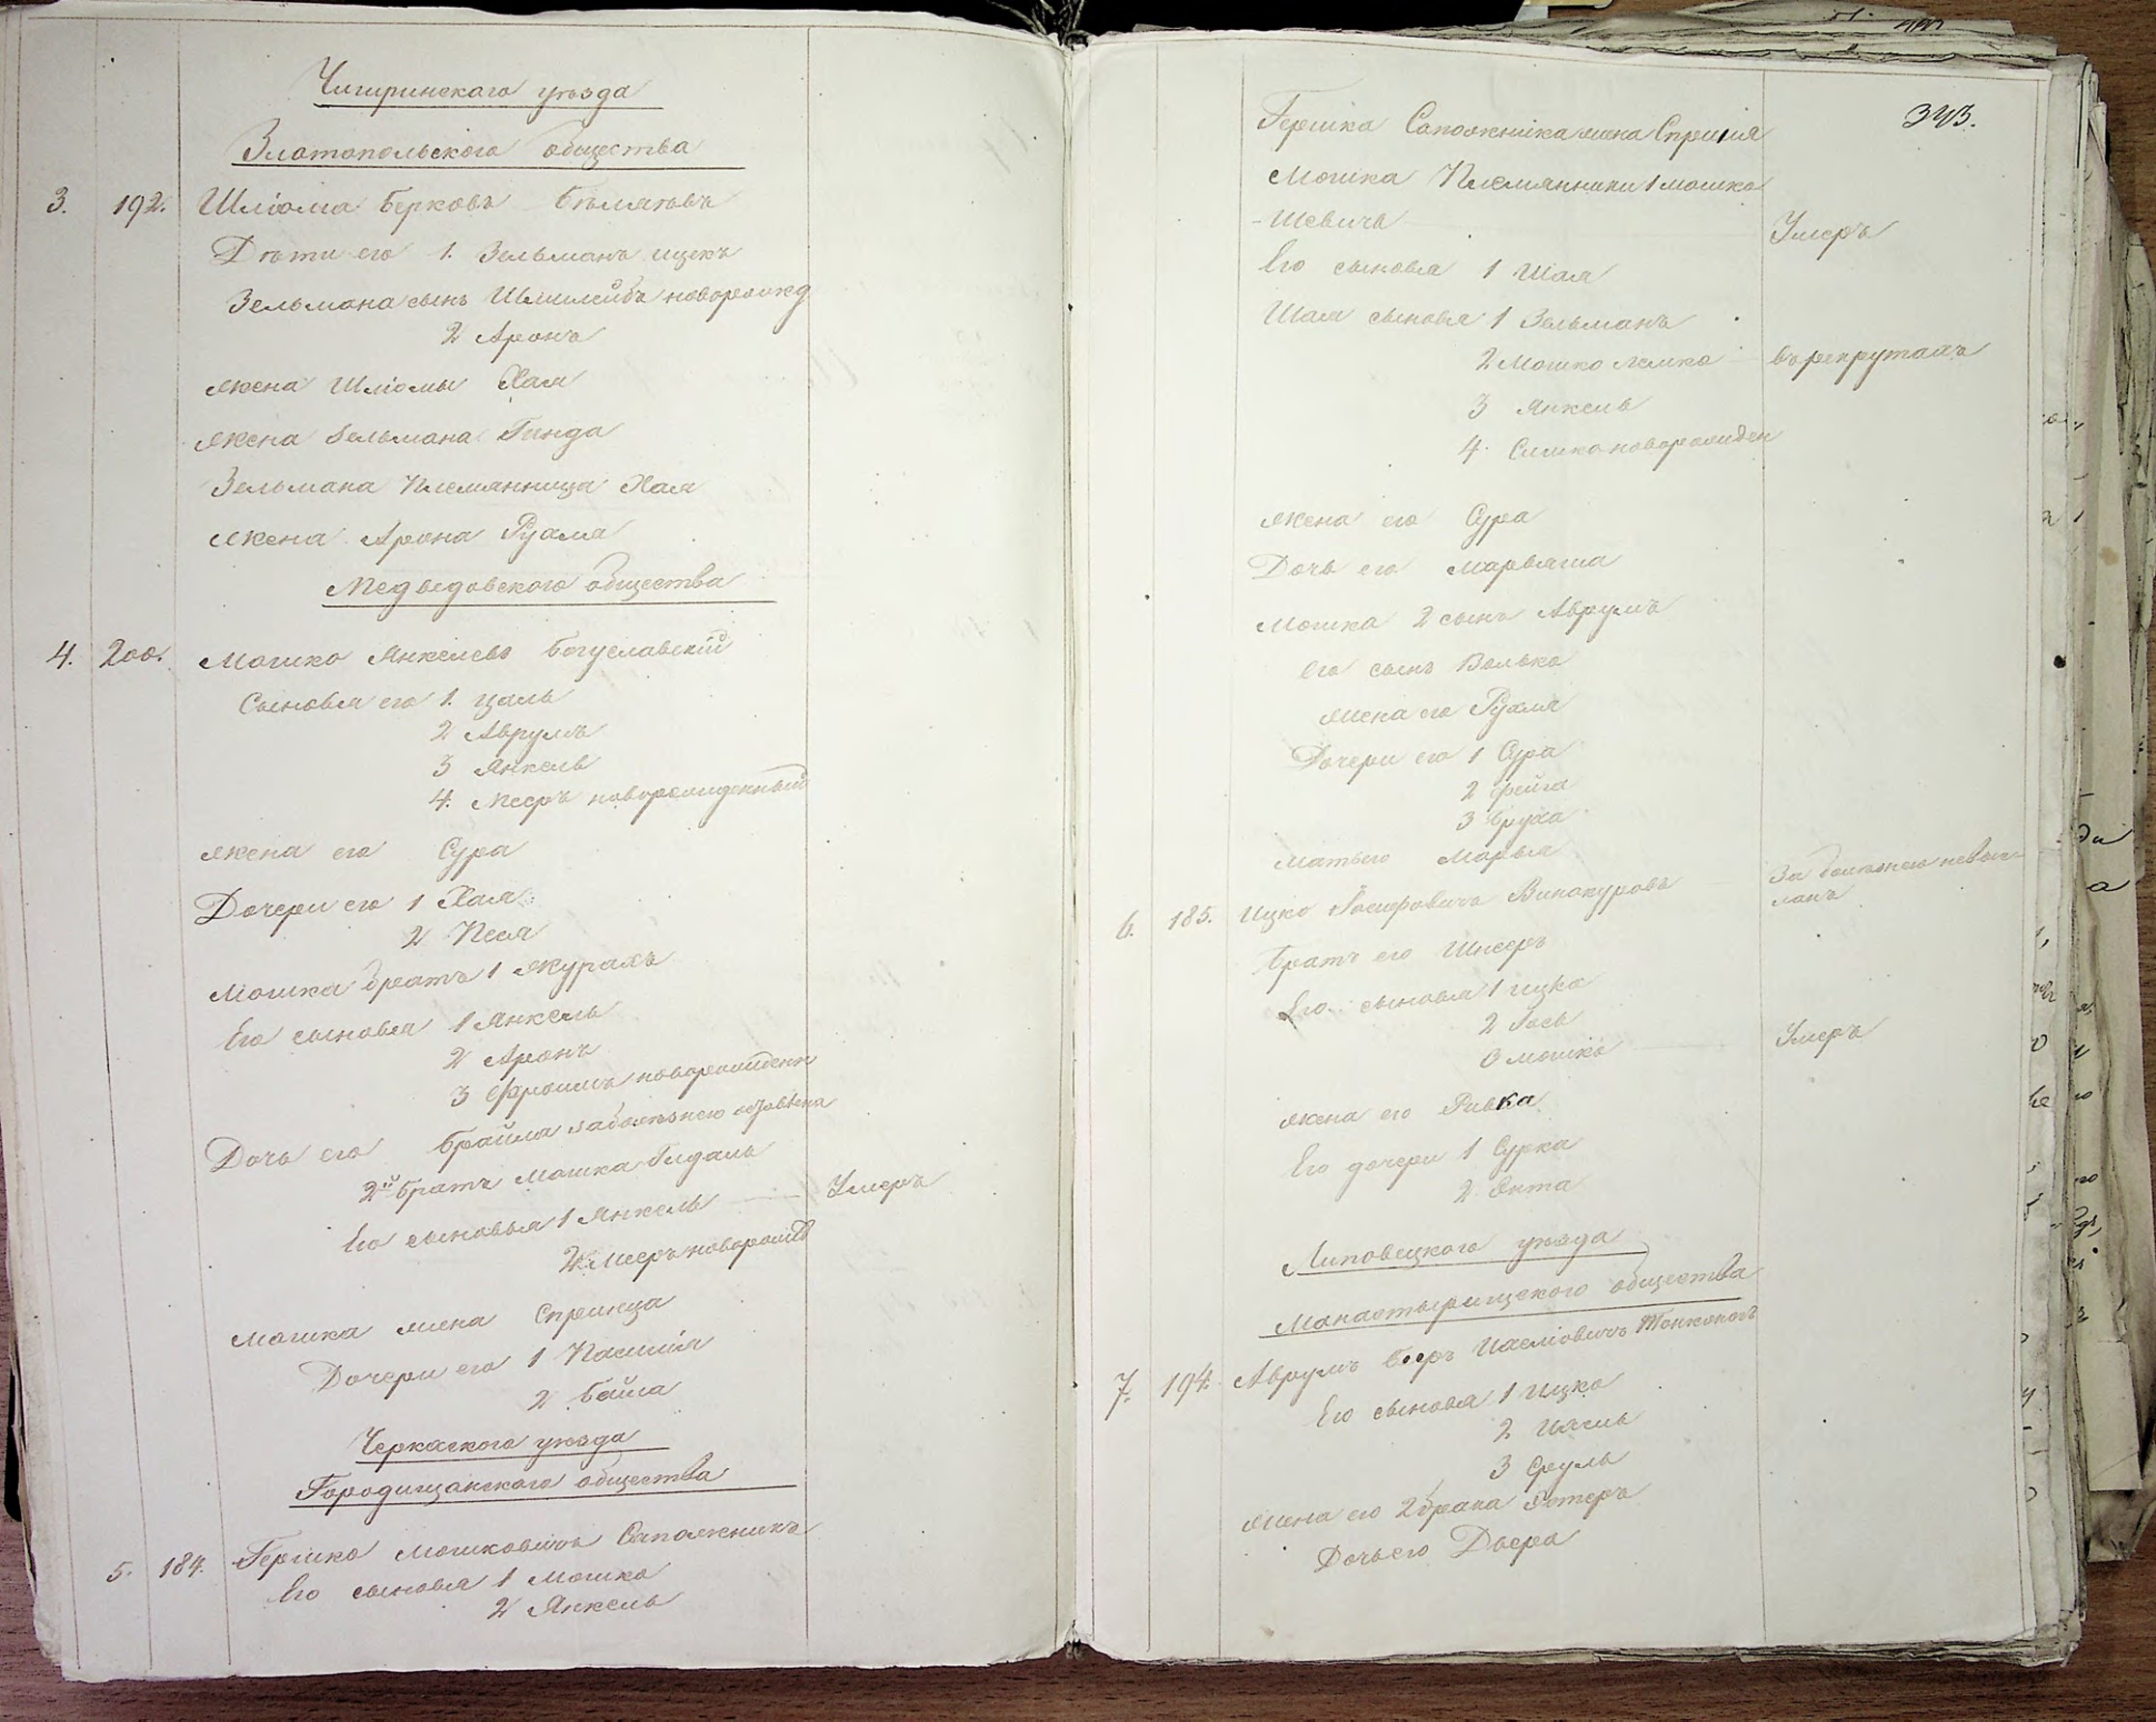 Чигиринскаго уѣзда
Златопольского общества
3. 192. Шліома Берковъ
Дѣти его 1. Зельманъ ицекъ
Зельмана сынъ Шмилейбъ новорожд
2 Аронъ
жена Шліомы Хая
жена Зельмана Гинда
Зельмана Племянница Хая
жена Арона
Медведовского общества
4. 200. Мошко Янкелевъ Богуславскій
Сыновья его 1. Цаль
2 Аврумъ
3 Янкель
4. Мееръ новорожденный
жена его Сура
Дочери его 1 Хая
2 Песя
Мошка братъ 1
Его сыновья 1 Янкель
2 Аронъ
3 Фроимъ новорожденн
Дочь его Брайна за болѣзнею
2й братъ Мошка Гидаль
Его сыновья 1 Янкель Умеръ
2 Мееръ новорожд
Мошка жена Спринца
Дочери его 1
2 Бейла
Черкаского уезда
Городищанскаго общества
5. 184. Гершко Мошковичъ Сапожникъ
Его сыновья 1 Мошко
2 Янкель
343.
Гершка Сапожника жена
Мошка Племянники 1 Мошко
-Шевичъ Умеръ
Его сыновья 1 Шая
Шая сыновья 1 Зельманъ
2 Мошко Лемко въ рекрутахъ
3 Янкель
4. Симко новорожден
жена его Сура
Дочь его Марьяша
Мошка 2 сынъ Аврумъ
Его сынъ Волько
жена его Рухля
Дочери его 1 Сура
2 Фейга
3 Бруха
Мать его Марья
6. 185. Ицко Іосифовичъ Винокуровъ За болезнею невыс-
ланъ
Братъ его Шнеер
Его сыновья 1 Ицко
2 Іось
3 Мошко Умеръ
жена его Ривка
Его дочери 1 Сурка
2. Якта
Липовецкого уезда
Манастырищского общества
7. 194. Аврумъ Беръ Тонконогъ
Его сыновья 1 Ицко
2
3 Сруль
жена его 2 брака Эстеръ
Дочь его Двера